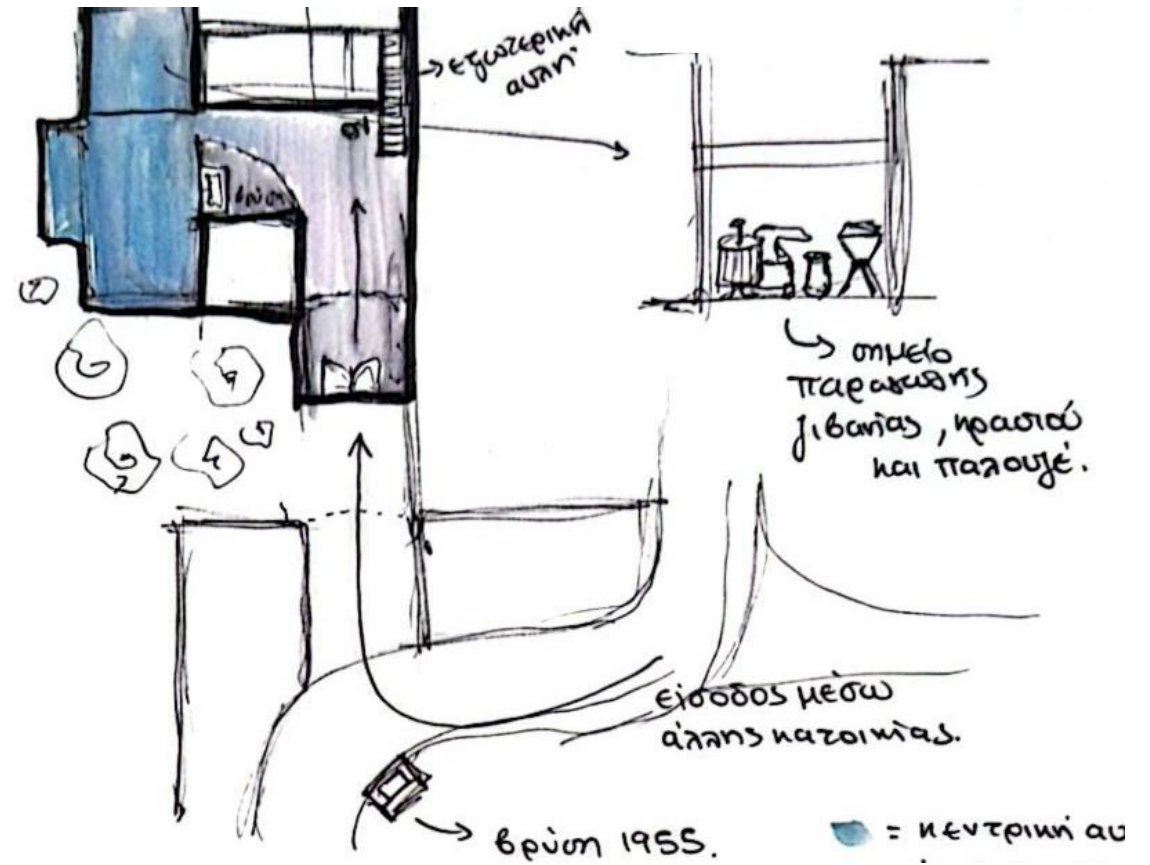 εξωτερική
αυλή
βρύση
σημείο
παραγωγής
ζιβανίας, κρασιού
και παλουζέ.
είσοδος μέσω
άλλης κατοικίας.
βρύση 1955.
= κεντρική αυ